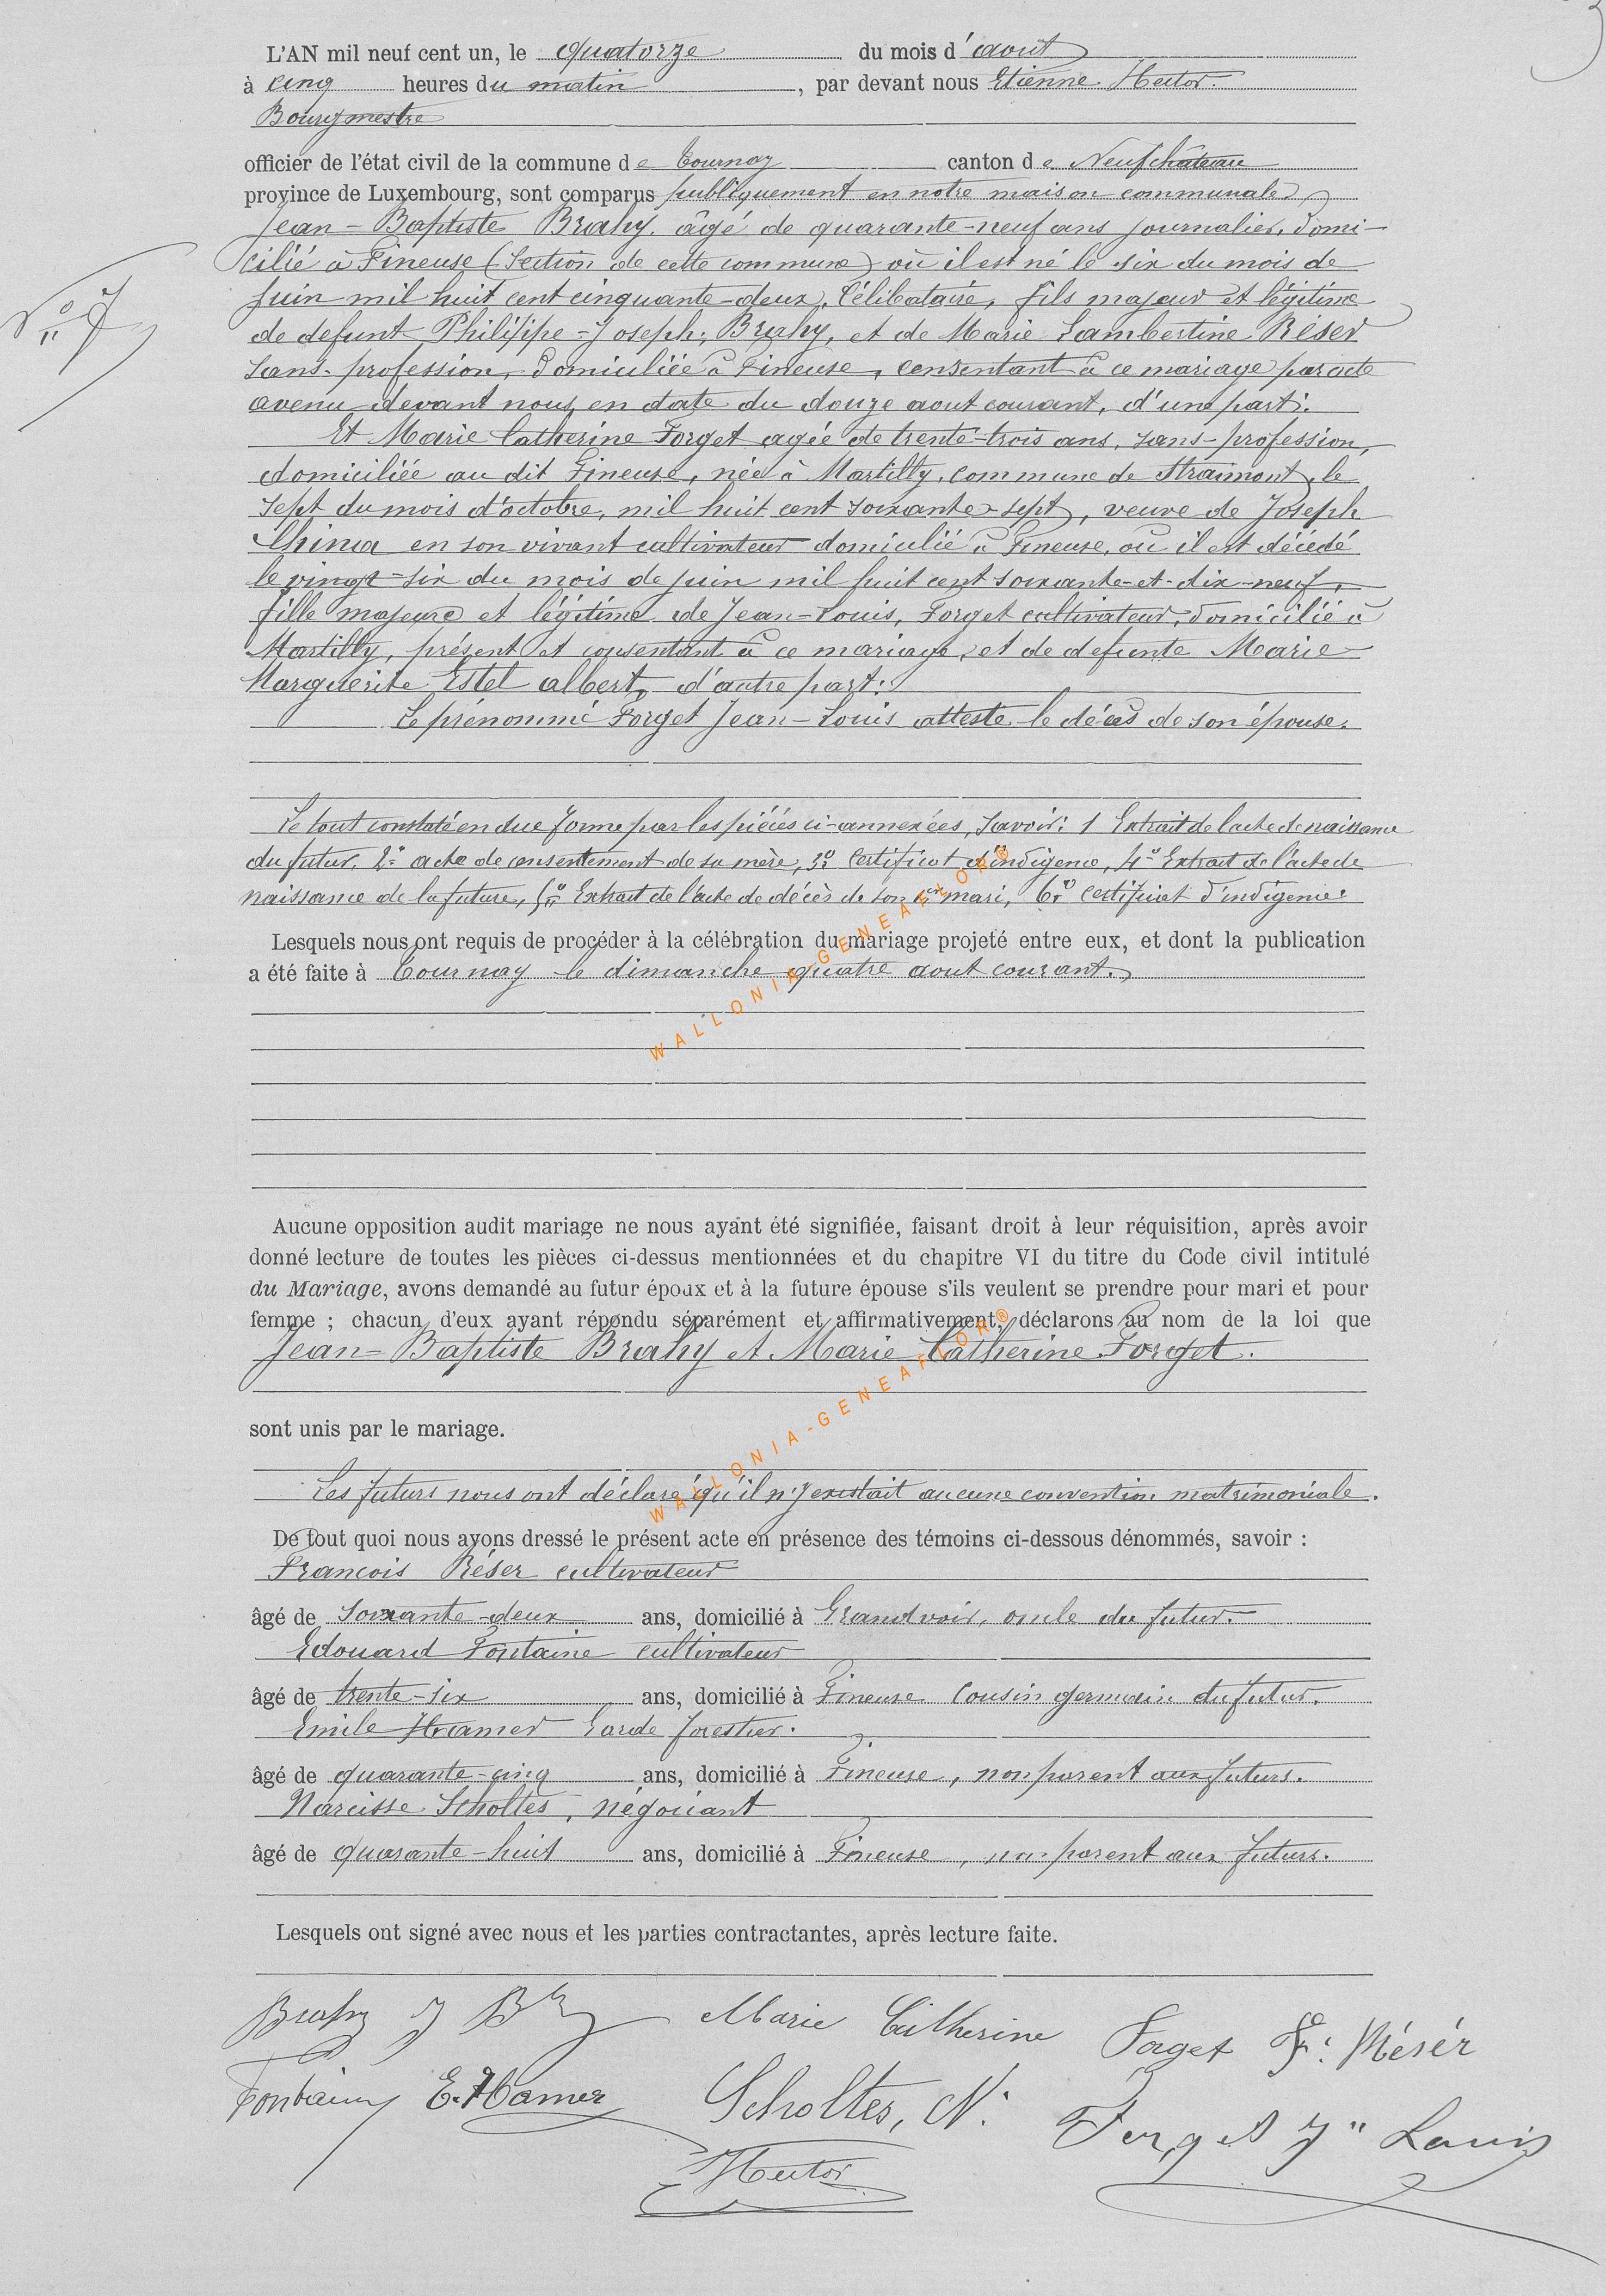 L'AN mil neuf cent un, le quatorze du mois d'aout
à cinq heures du matin, par devant nous Etienne Hector
Bourgmestre
officier de l'état civil de la commune de Tournay canton de Neufchâteau
province de Luxembourg, sont comparus publiquement en notre maison communale
Jean-Baptiste Brahy, âgé de quarante-neuf ans journalier, domi-
cilié à Fineuse (Section de cette commune) où il est né le six du mois de
Juin mil huit cent cinquante-deux, Célibataire, fils majeur et légitime
N° 7
de defunt Philippe-Joseph, Brahy, et de Marie Lambertine Réser
sans-profession, domiciliée à Fineuse, consentant à ce mariage par acte
avenu devant nous en date du douze aout courant, d'une part:
Et Marie Catherine Forget agée de trente-trois ans, sans-profession,
domiciliée au dit Fineuse, née à Martilly, commune de Straimont, le
sept du mois d'octobre, mil huit cent soixante-sept, veuve de Joseph
en son vivant cultivateur domicilié à Fineuse, où il est décédé
le vingt-six du mois de juin mil huit cent soixante-et-dix-neuf,
fille majeure et légitime de Jean-Louis, Forget cultivateur, domicilié à
Martilly, présent et consentant à ce mariage, et de defunte Marie
Marguerite Estel albert, d'autre part:
Le prénommé Forget Jean-Louis atteste le décès de son épouse.
Le tout constaté en due forme par les pièces ci-annexées, savoir: 1 Extrait de l'acte de naissance
du futur, 2° acte de consentement de sa mère, 3° Certificat d'indigence, 4° Extrait de l'acte de
naissance de la future, 5° Extrait de l'acte de décès de son 1er mari, 6° Certificat d'indigence
Lesquels nous ont requis de procéder à la célébration du mariage projeté entre eux, et dont la publication
a été faite à Tournay le dimanche quatre aout courant.
WALLONIA-GENEAFLOR®
Aucune opposition audit mariage ne nous ayant été signifiée, faisant droit à leur réquisition, après avoir
donné lecture de toutes les pièces ci-dessus mentionnées et du chapitre VI du titre du Code civil intitulé
du Mariage, avons demandé au futur époux et à la future épouse s'ils veulent se prendre pour mari et pour
femme ; chacun d'eux ayant répondu séparément et affirmativement, déclarons au nom de la loi que
Jean-Baptiste Brahy et Marie Catherine Forget.
WALLONIA-GENEAFLOR®
sont unis par le mariage.
Les futurs nous ont déclaré qu'il n'y existait aucune convention matrimoniale.
De tout quoi nous avons dressé le présent acte en présence des témoins ci-dessous dénommés, savoir :
Francois Réser cultivateur
âgé de soixante-deux ans, domicilié à Grandvoir, oncle du futur.
Edouard Fontaine cultivateur
âgé de trente-six ans, domicilié à Fineuse Cousin germain du futur.
Emile Hamer Garde forestier.
âgé de quarante-cinq ans, domicilié à Fineuse, non parent aux futurs.
Narcisse Scholtes, négociant
âgé de quarante-huit ans, domicilié à Fineuse, non parent aux futurs.
Lesquels ont signé avec nous et les parties contractantes, après lecture faite.
Brahy J B Marie Catherine Forget F. Résér
Fontaine E. Hamer Scholtes, N. Forget Jn Louis
Hector